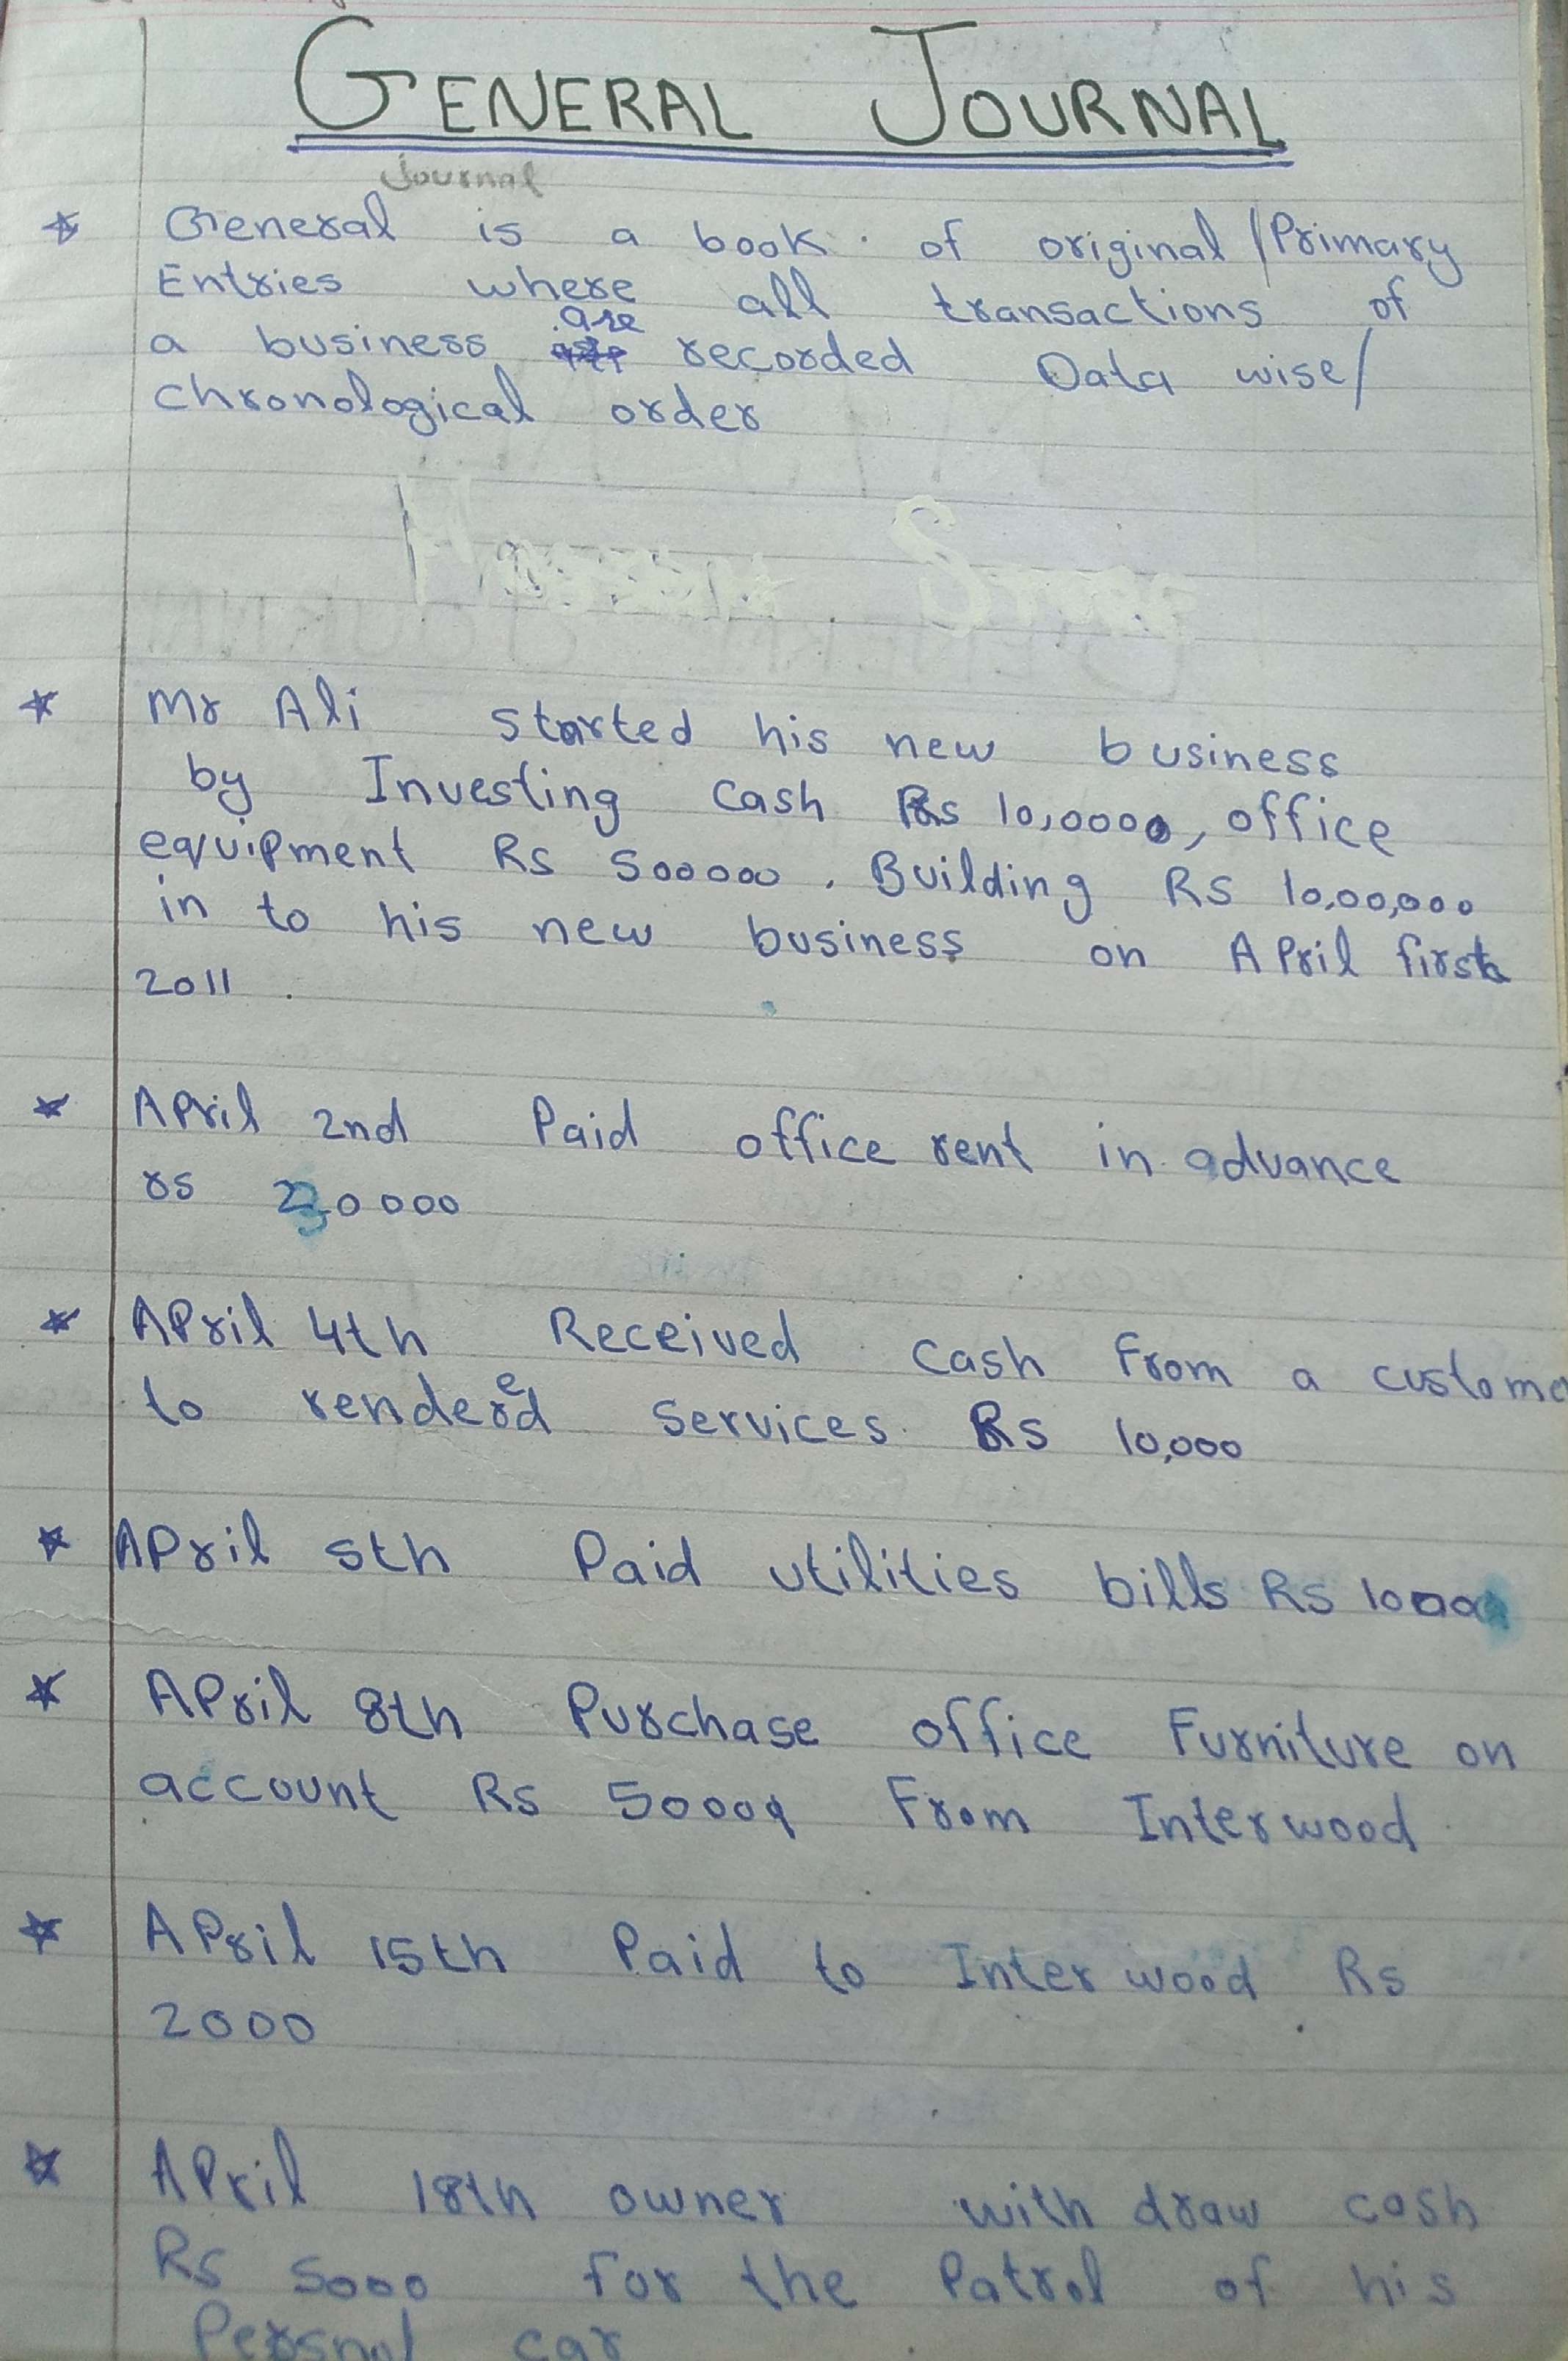 GENERAL JOURNAL
Journal
General is a book of original/Primary
Entries where all transactions of
are
a business recorded Data wise/
chronological order
Mr Ali started his new business
by Investing Cash Rs 10,00000, office
equipment Rs 500000. Building Rs 10,00,000
in to his new business on April first
2011.
April 2nd Paid office rent in advance
rs 0000
April 4th Received Cash From a custome
to rendered Services Rs 10,000
April 5th Paid utilities bills Rs 1000
April 8th Purchase office Furniture on
account Rs 50000 From Interwood
April 15th Paid to Inter wood Rs
2000
April 18th owner with draw cash
Rs 5000 for the Patrol of his
Persnal car